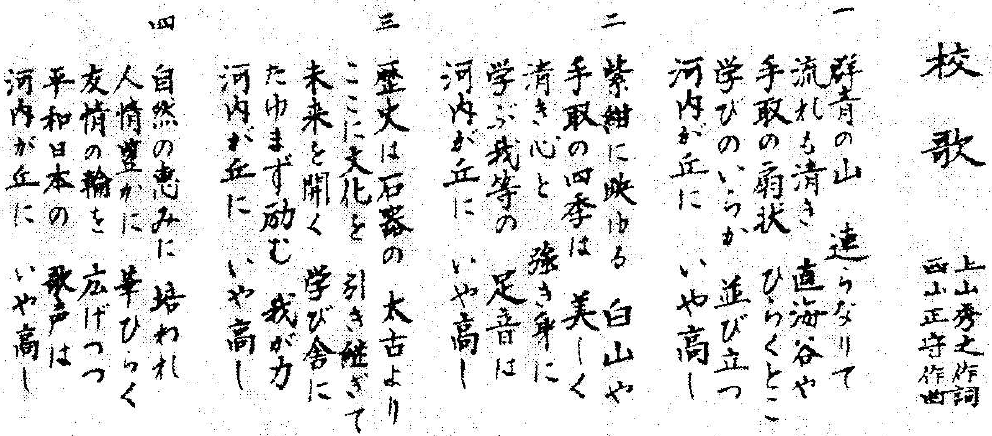 校歌
上山秀之作詞
西山正守作曲
一
群青の山 連らなりて
流れも清き 直海谷や
手取の扇状 ひらくとこ
学びのいらか 並び立つ
河内が丘に いや高し
二
紫紺に映ゆる 白山や
手取の四季は 美しく
清き心と 強き身に
学ぶ我等の 足音は
河内が丘に いや高し
三
歴史は石器の 太古より
ここに文化を 引き継ぎて
未来を開く 学び舎に
たゆまず励む 我が力
河内が丘に いや高し
四
自然の恵みに 培われ
人情豊かに 華ひらく
友情の輪を 広げつつ
平和日本の 歌声は
河内が丘に いや高し